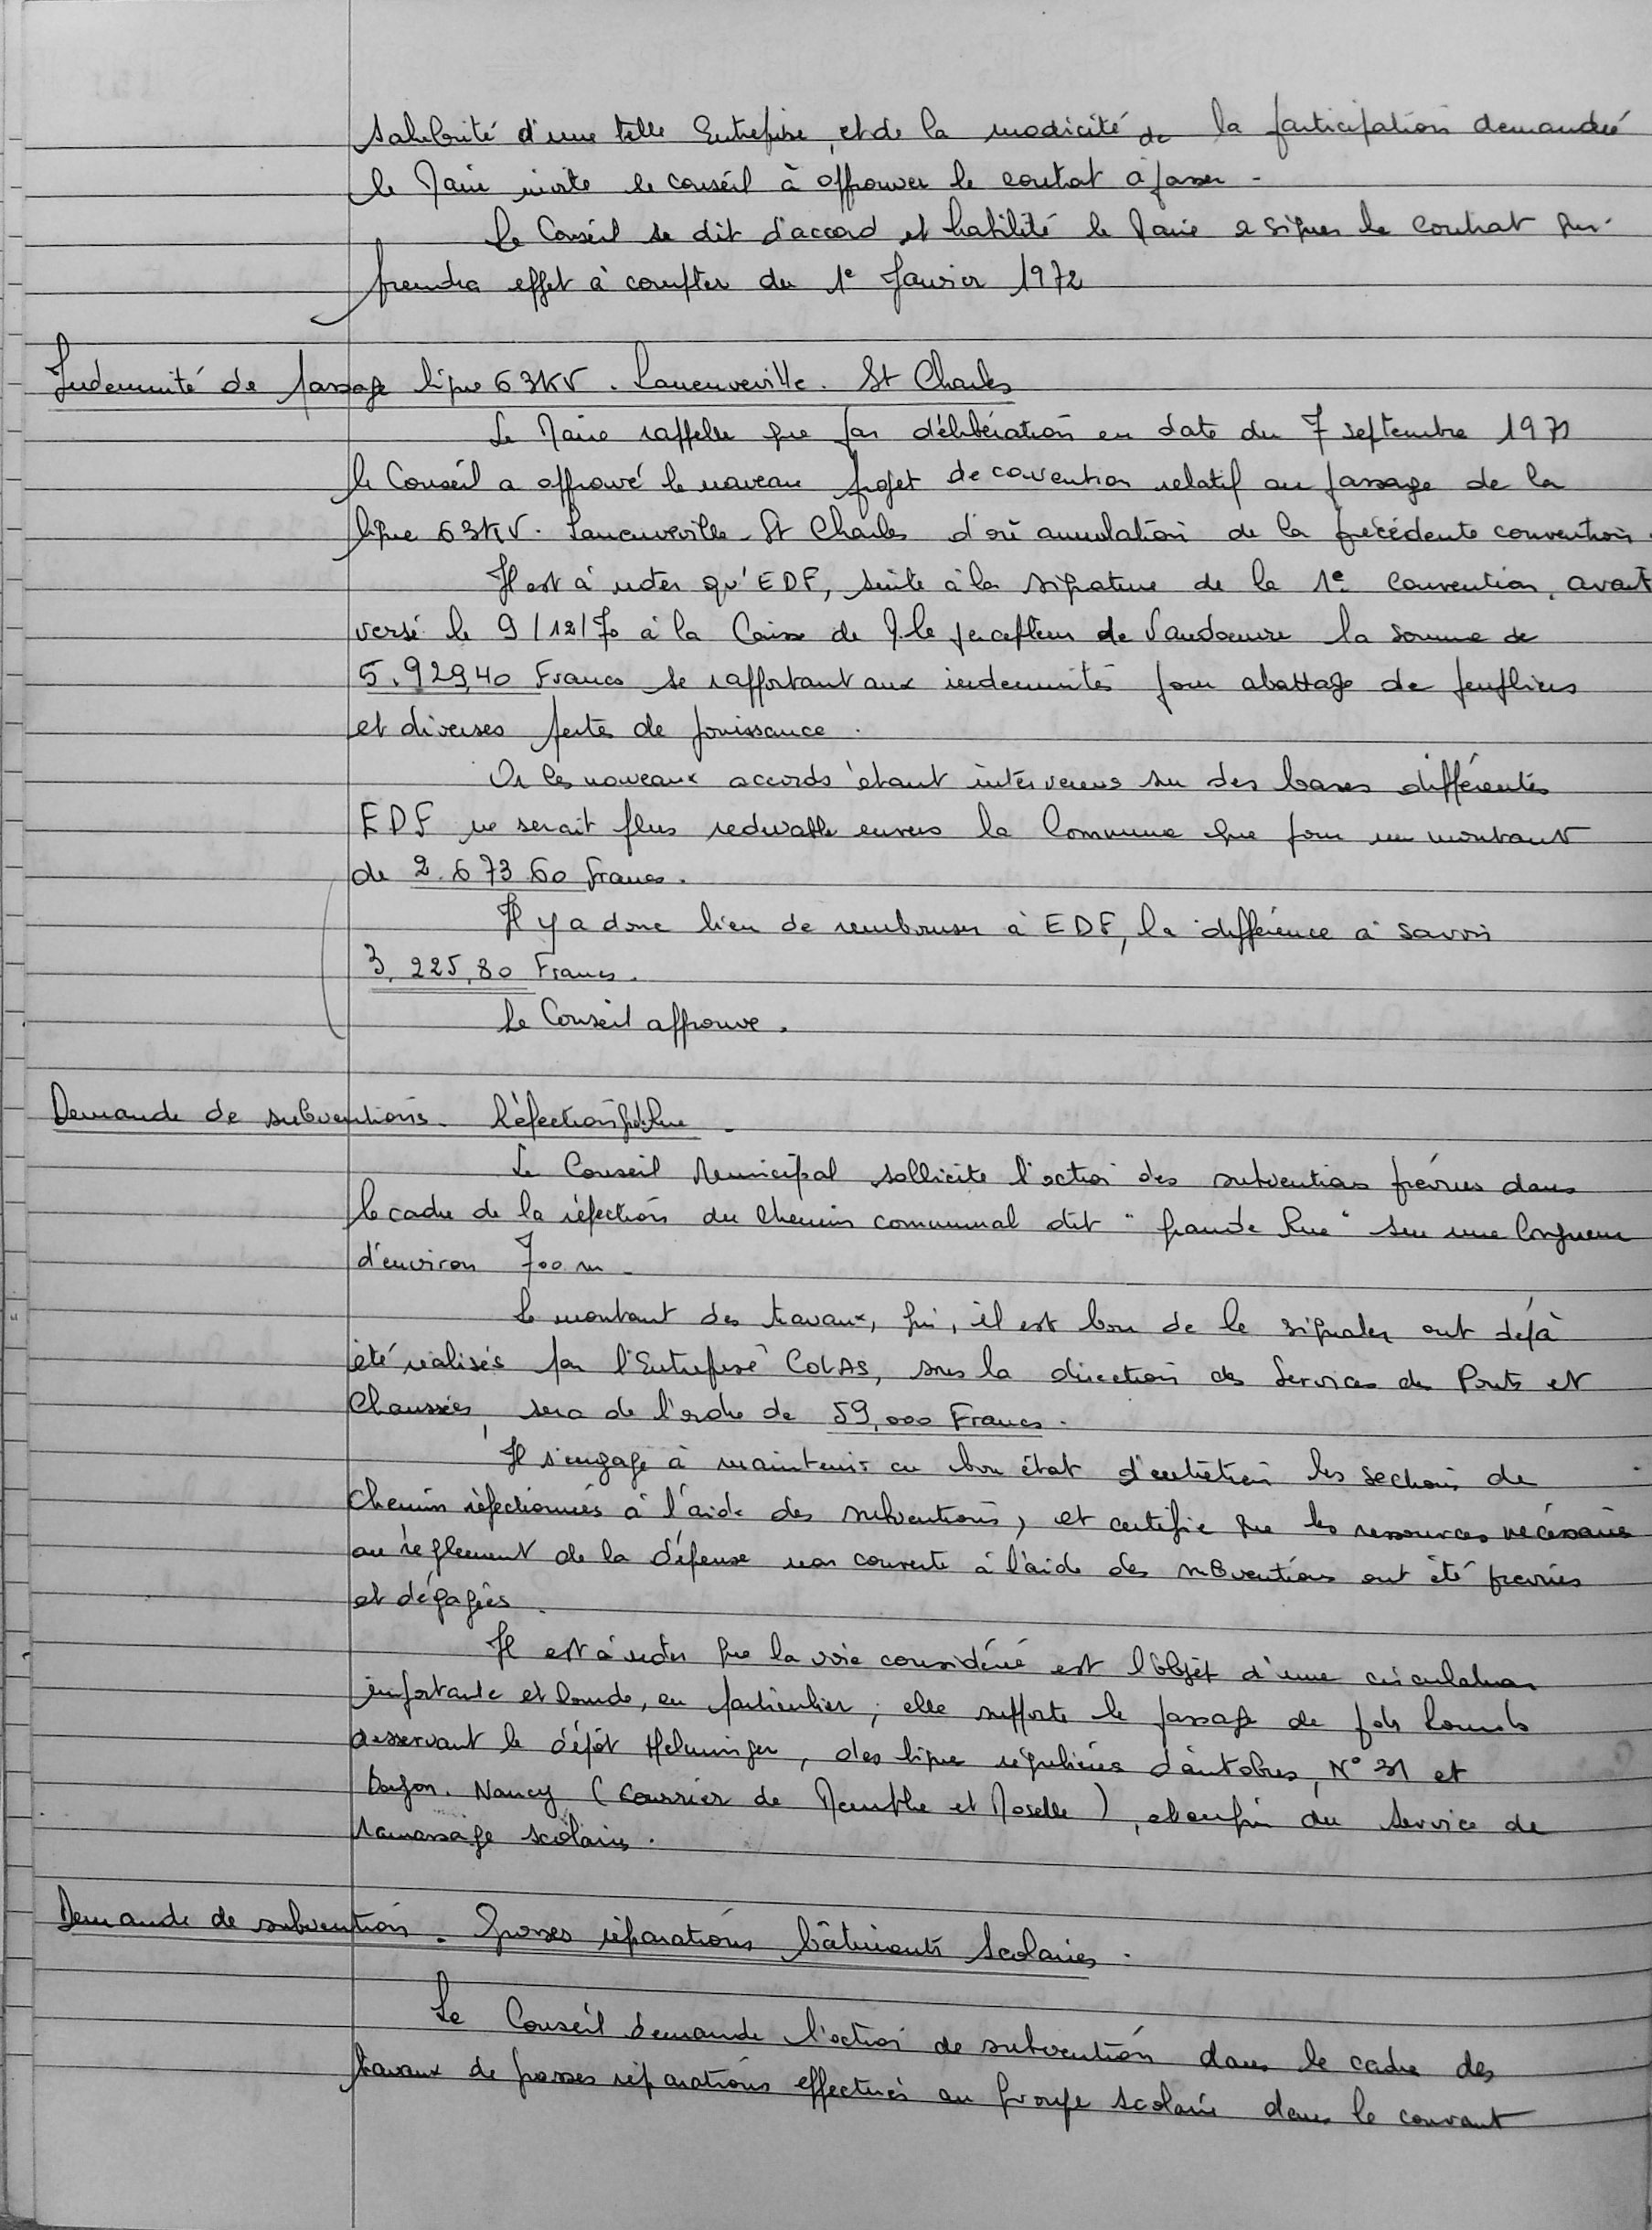 salubrité d'une telle Entreprise, et de la modicité de la participation demandée
le Maire invite le conseil à approuver le contrat à passer -
Le Conseil se dit d'accord et habilité le Maire à signer le contrat qui
prendra effet à compter du 1e Janvier 1972
Indemnité de passage ligne 63KV. Laneuveville. St Charles
Le Maire rappelle que par délibération en date du 7 septembre 1971
le Conseil a approuvé le nouveau projet de convention relatif au passage de la
ligne 63KV. Laneuveville - St Charles d'où annulation de la précédente convention.
Il est à noter qu'EDF, suite à la signature de la 1e convention, avait
versé le 9/12/70 à la Caisse de M. le percepteur de Vandoeuvre la somme de
5.929,40 Francs se rapportant aux indemnités pour abattage de peupliers
et diverses pertes de jouissance.
Or les nouveaux accords étant intervenus sur des bases différentes
EDF ne serait plus redevable envers la Commune que pour un montant
de 2.673 60 francs.
Il y a donc lieu de rembourser à EDF, la différence à savoir
3.225,80 Francs.
Le Conseil approuve.
Demande de subventions. Réfection Gde Rue.
Le Conseil Municipal sollicite l'octroi des subventions prévues dans
le cadre de la réfection du chemin communal dit " grande Rue " sur une longueur
d'environ 700 m -
Le montant des travaux, qui, il est bon de le signaler ont déjà
été réalisés par l'Entreprise COLAS, sous la direction des Services des Ponts et
Chaussées, sera de l'ordre de 59,000 Francs.
Il s'engage à maintenir en bon état d'entretien les sections de
chemin réfectionnés à l'aide des subventions, et certifie que les ressources nécessaires
au règlement de la dépense non couverte à l'aide des subventions ont été prévues
et dégagées.
Il est à noter que la voie considérée est l'objet d'une circulation
importante et lourde, en particulier; elle supporte le passage de poids lourds
desservant le dépôt Helminger, des lignes régulières d'autobus, N° 31 et
Bayon. Nancy (Courrier de Meurthe et Moselle), et enfin du Service de
ramassage scolaire.
Demande de subvention. Grosses réparations bâtiments scolaires.
Le Conseil demande l'octroi de subvention dans le cadre des
travaux de grosses réparations effectués au groupe scolaire dans le courant